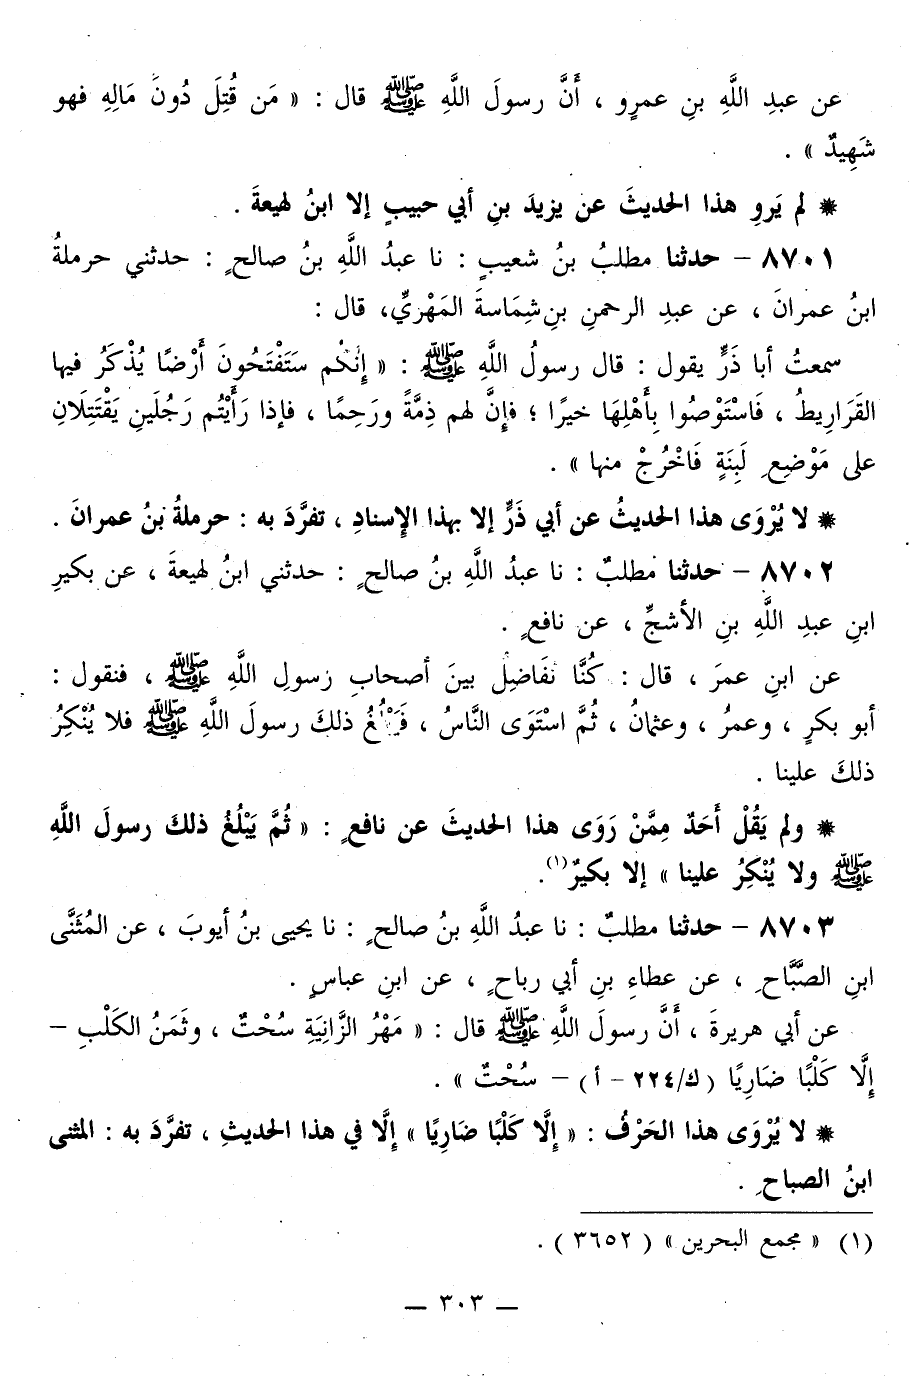 عن عبدِ اللَّهِ بنِ عمرٍو ، أَنَّ رسولَ اللَّهِ ﷺ قال : « مَن قُتِلَ دُونَ مَالِهِ فهو
شَهِيدٌ » .
* لم يَروِ هذا الحديثَ عن يزيدَ بنِ أبي حبيبٍ إلا ابنُ لهيعةَ .
٨٧٠١ – حدثنا مطلبُ بنُ شعيبٍ : نا عبدُ اللَّهِ بنُ صالحٍ : حدثني حرملةُ
ابنُ عمرانَ ، عن عبدِ الرحمنِ بنِ شِمَاسةَ المَهْرِيِّ، قال :
سمعتُ أبا ذَرٍّ يقول : قال رسولُ اللَّهِ ﷺ : « إِنَّكُم سَتَفْتَحُونَ أَرْضًا يُذْكَرُ فيها
القَرَارِيطُ ، فَاسْتَوْصُوا بِأَهْلِهَا خيرًا ؛ فإِنَّ لهم ذِمَّةً ورَحِمًا ، فإذا رَأَيْتُم رَجُلَينِ يَقْتَتِلَانِ
على مَوْضِعِ لَبِنَةٍ فَاخْرُجْ منها » .
* لا يُرْوَى هذا الحديثُ عن أبي ذَرٍّ إلا بهذا الإسنادِ ، تفرَّدَ به : حرملةُ بنُ عمرانَ .
٨٧٠٢ – حدثنا مطلبٌ : نا عبدُ اللَّهِ بنُ صالحٍ : حدثني ابنُ لهيعةَ ، عن بكيرِ
ابنِ عبدِ اللَّهِ بنِ الأشجِّ ، عن نافعٍ .
عن ابنِ عمرَ ، قال : كُنَّا نُفَاضِلُ بينَ أصحابِ رسولِ اللَّهِ ﷺ ، فنقول :
أبو بكرٍ ، وعمرُ ، وعثمانُ ، ثُمَّ اسْتَوَى النَّاسُ ، فَيَبْلُغُ ذلكَ رسولَ اللَّهِ ﷺ فلا يُنْكِرُ
ذلكَ علينا .
* ولم يَقُلْ أَحَدٌ مِمَّنْ رَوَى هذا الحديثَ عن نافعٍ : « ثُمَّ يَبْلُغُ ذلكَ رسولَ اللَّهِ
ﷺ ولا يُنْكِرُ علينا » إلا بكيرٌ(١).
٨٧٠٣ – حدثنا مطلبٌ : نا عبدُ اللَّهِ بنُ صالحٍ : نا يحيى بنُ أيوبَ ، عن المُثَنَّى
ابنِ الصَّبَّاحِ ، عن عطاءِ بنِ أبي رباحٍ ، عن ابنِ عباسٍ .
عن أبي هريرةَ ، أَنَّ رسولَ اللَّهِ ﷺ قال : « مَهْرُ الزَّانِيَةِ سُحْتٌ ، وثَمَنُ الكَلْبِ –
إِلَّا كَلْبًا ضَارِيًا (ك/٢٢٤ – أ) – سُحْتٌ » .
* لا يُرْوَى هذا الحَرْفُ : « إِلَّا كَلْبًا ضَارِيًا » إِلَّا في هذا الحديثِ ، تفرَّدَ به : المثنى
ابنُ الصباحِ .
(١) « مجمع البحرين » ( ٣٦٥٢ ) .
— ٣٠٣ —